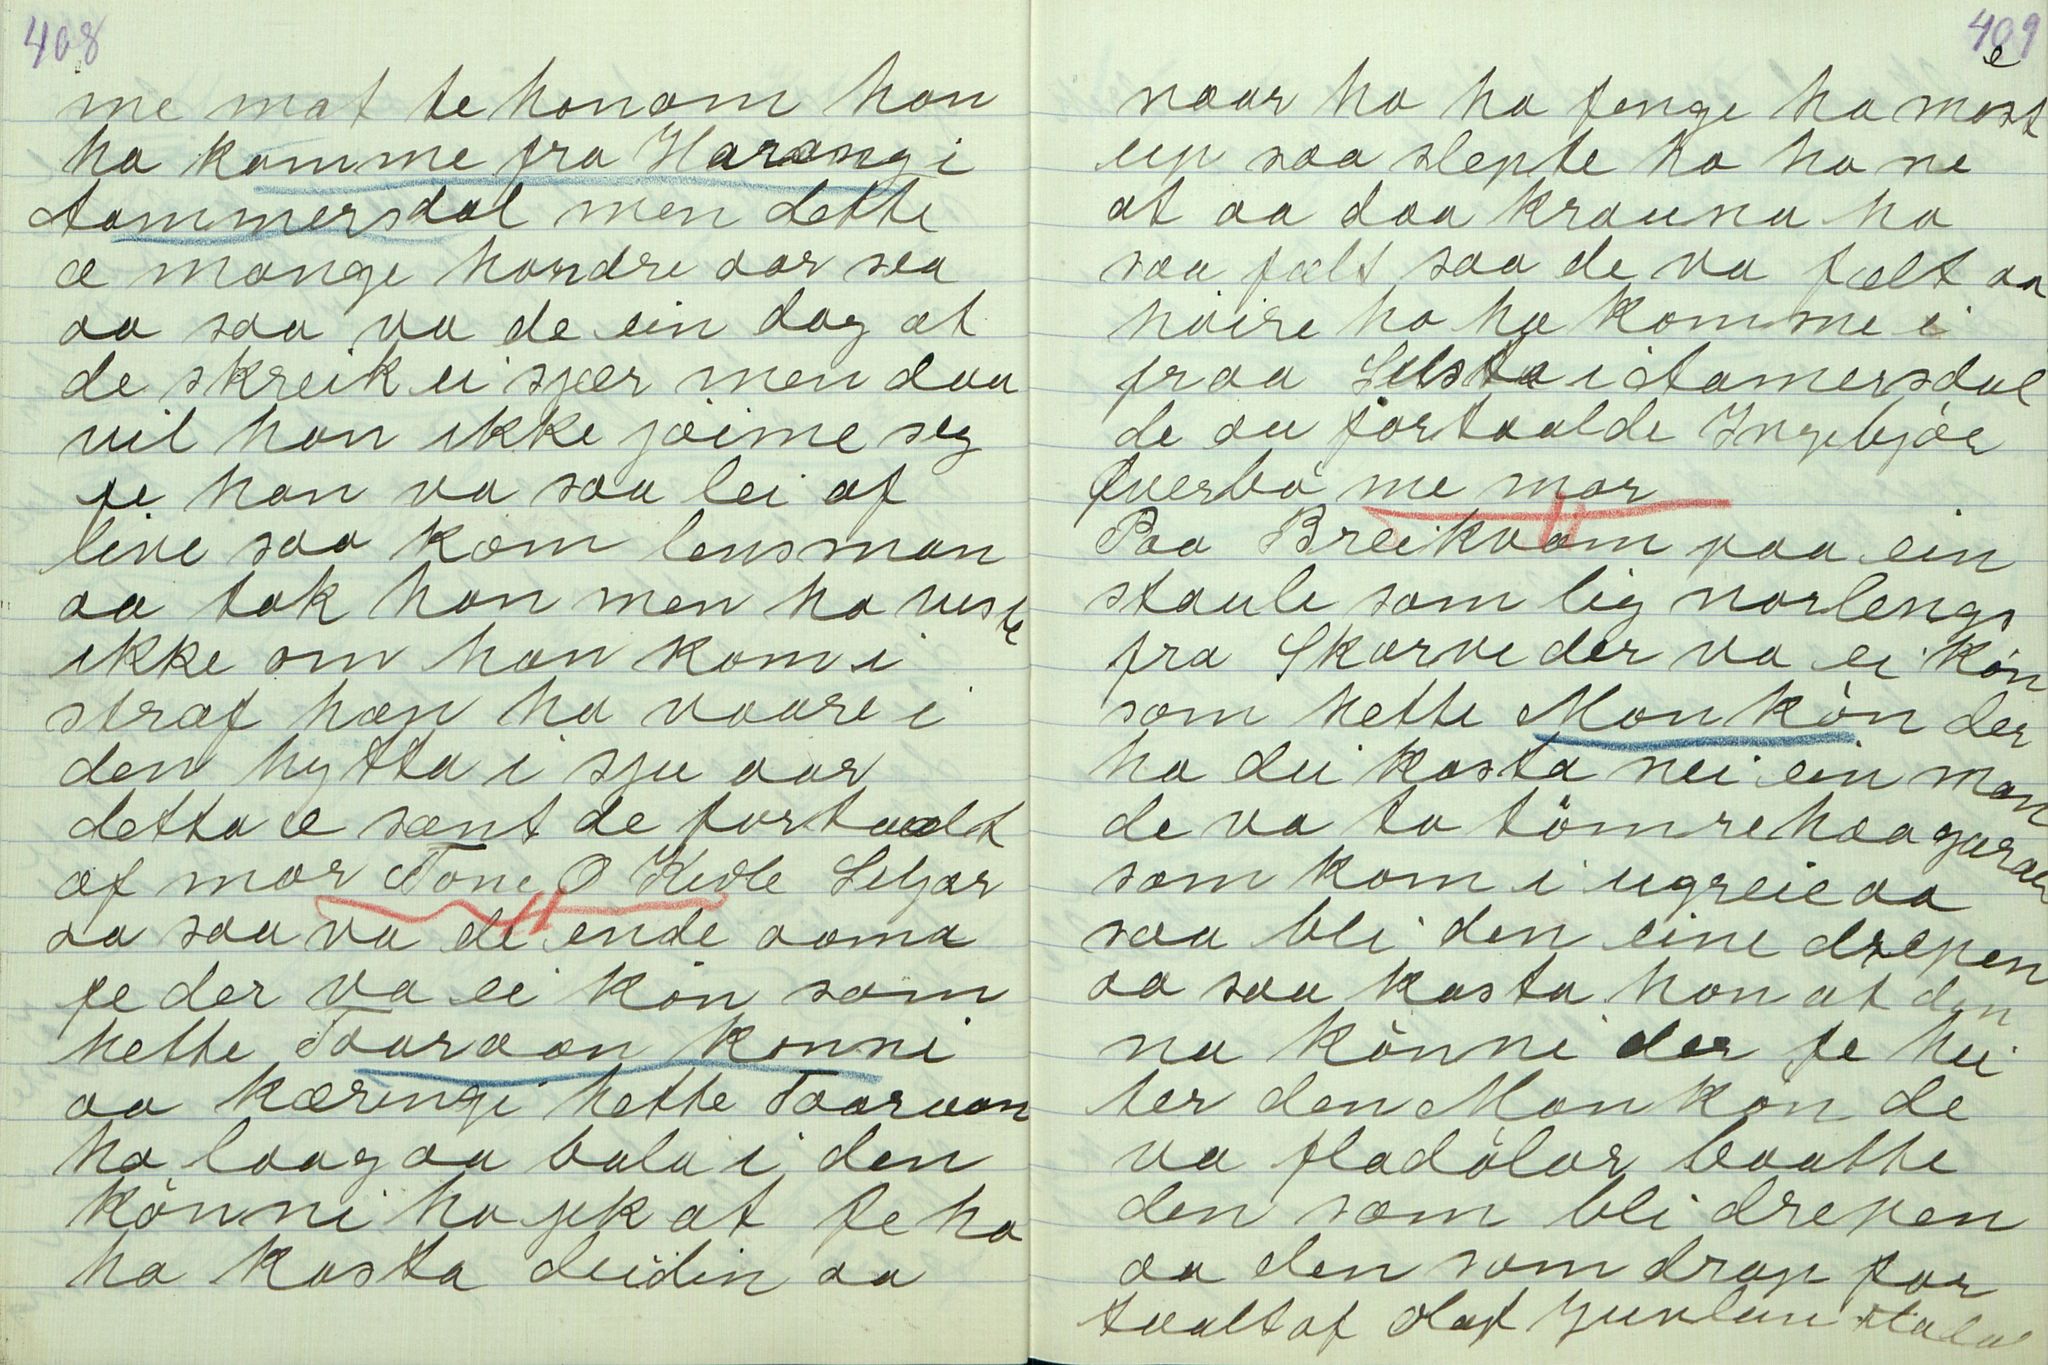 408
me mat te honom han
ha komme fra Harang i
Aammersdal men dette
æ mange hondre aar sea
aa saa va de ein dag at
de skreik ei sjær men daa
vil han ikke jøime seg
fe han va saa lei af
live saa kom lensman
aa tok han men ho viste
ikke om han kom i
straf han ha vaare i
den hytta i sju aar
detta æ sant de fortaalt
af mor Tone O Kivle Seljor
aa saa va de ende aama
fe der va ei kòn som
hette Taaraan konni
aa kæringi hette Taaraan
ho laag aa bala i den
kònni ho jek at fe ho
ha kasta deidin aa
409
naar ho ha fenge ha mest
up saa slepte ho ha ne
at aa daa krauna ho
saa fælt saa de va fælt aa
hòire ho ha komme i
fraa Selsta i Aamersdal
de au fortaalde Ingebjòr
Qverbò me mor
Paa Breikvam paa ein
staule som lig norlengs
fra Skarve der va ei kòn
som hette Mankòn der
ha dei kasta nei ein man
de va to tömrehaagarar
som kom i ugreie aa
saa blei den eine drepen
aa saa kasta han at den
na kònni der fe hei
ter den Mankòn de
va fladòlar baatte
den som blei drepen
aa den som drap for
taalt af Olaf